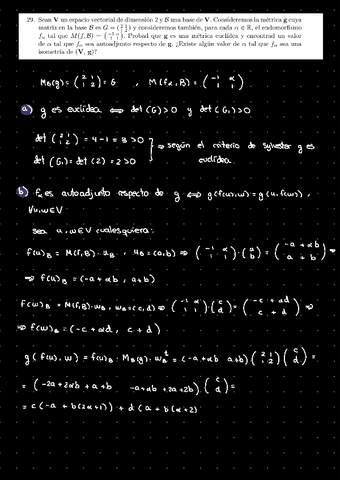 29. Sean V un espacio vectorial de dimensión 2 y B una base de V. Consideremos la métrica g cuya
matriz en la base B es G = (2 1 1 2) y consideremos también, para cada α ∈ ℝ, el endomorfismo
fα tal que M(f, B) = (-1 α 1 1). Probad que g es una métrica euclídea y encontrad un valor
de α tal que fα sea autoadjunto respecto de g. ¿Existe algún valor de α tal que fα sea una
isometría de (V, g)?
MB(g) = (2 1 1 2) = G , M(fα, B) = (-1 α 1 1)
a) g es euclídea ⇔ det(G) > 0 y det(G1) > 0
det (2 1 1 2) = 4 - 1 = 3 > 0
det (G1) = det (2) = 2 > 0 ⇒ según el criterio de sylvester g es euclídea.
b) fα es autoadjunto respecto de g ⇔ g(f(u), w) = g(u, f(w)) ,
∀u, w ∈ V
sea u, w ∈ V cualesquiera:
f(u)B = M(f, B) · uB , uB = (a, b) ⇒ (-1 α 1 1) · (a b) = (-a + αb a + b) ⇒
⇒ f(u)B = (-a + αb , a + b)
f(w)B = M(f, B) · wB , wB = (c, d) ⇒ (-1 α 1 1) · (c d) = (-c + αd c + d) ⇒
⇒ f(w)B = (-c + αd, c + d)
g(f(u), w) = f(u)B · MB(g) · wB^t = (-a + αb a + b) (2 1 1 2) (c d) =
= (-2a + 2αb + a + b -a + αb + 2a + 2b) · (c d) =
= c(-a + b(2α + 1)) + d(a + b(α + 2)